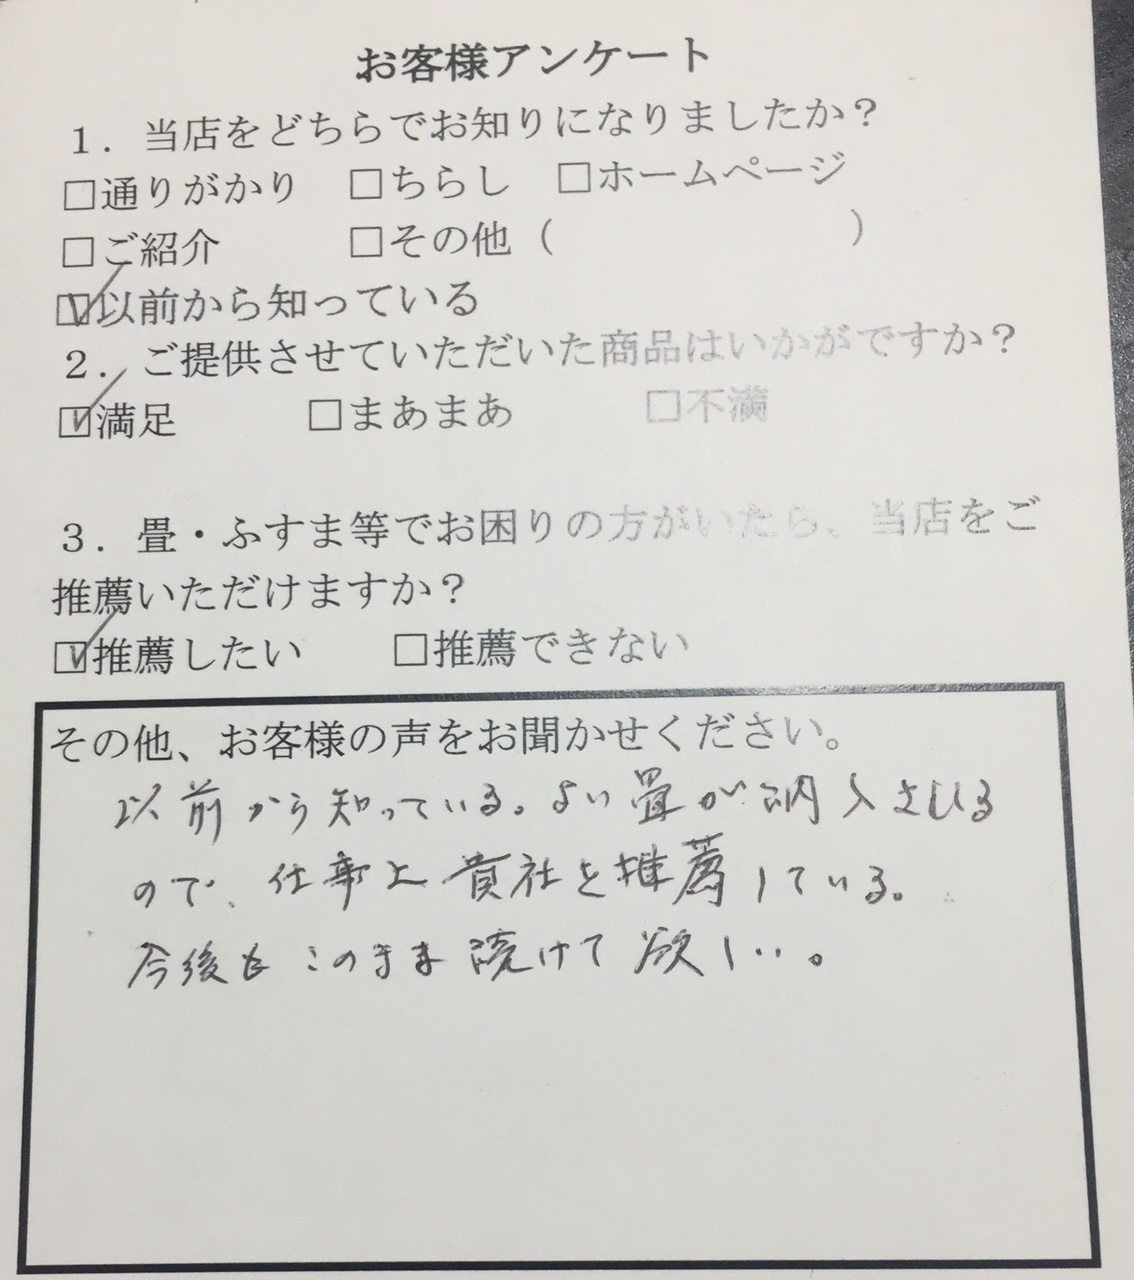 お客様アンケート
１．当店をどちらでお知りになりましたか？
□通りがかり　□ちらし　□ホームページ
□ご紹介　　　□その他（　　　　　　　）
☑以前から知っている
２．ご提供させていただいた商品はいかがですか？
☑満足　　　□まあまあ　　　□不満
３．畳・ふすま等でお困りの方がいたら、当店をご
推薦いただけますか？
☑推薦したい　　□推薦できない
その他、お客様の声をお聞かせください。
以前から知っている。よい畳が納入される
ので、仕事上貴社を推薦している。
今後もこのまま続けて欲しい。